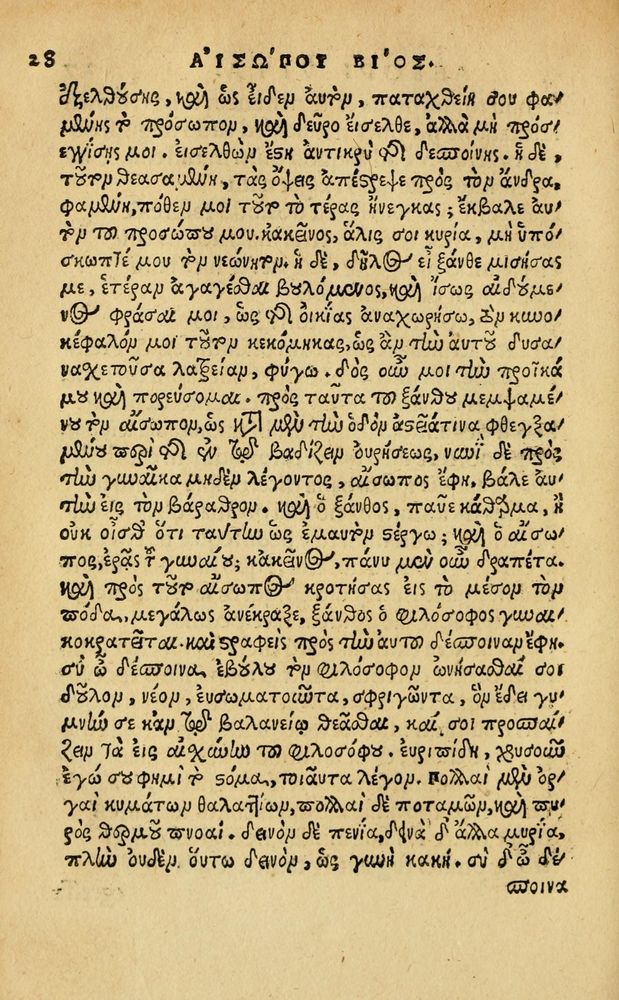 28 ΑἸΣΩ´ΠΟΥ ΒΙ´ΟΣ.
ἐξελθούσης, καὶ ὡς εἶδεν αὐτὸν, παταχθεῖσά σου φα-
μένης τὸ πρόσωπον, καὶ δεῦρο εἴσελθε, ἀλλὰ μὴ πρόσ-
εγγίσῃς μοι. εἰσελθὼν ἔστη ἀντικρὺ τῆς δεσποίνης. ἡ δὲ,
τοῦτον θεασαμένη, τὰς ὄψεις ἀπέστρεψε πρὸς τὸν ἄνδρα,
φαμένη, πόθεν μοι τοῦτο τὸ τέρας ἤνεγκας; ἔκβαλε αὐ-
τὸν τοῦ προσώπου μου. κἀκεῖνος, ἅλις σοι κυρία, μὴ ὑπό-
σκωπτέ μου τὸν νεώνητον. ἡ δὲ, δῆλος εἶ ξάνθε μισήσας
με, ἑτέραν ἀγαγέσθαι βουλόμενος, καὶ ἴσως αἰδούμε-
νος φράσαι μοι, ὡς τῆς οἰκίας ἀναχωρήσω, τὸν κυνο-
κέφαλόν μοι τοῦτον κεκόμηκας, ὡς ἂν τὴν αὐτοῦ δυσα-
νασχετοῦσα λατρείαν, φύγω. δὸς οὖν μοι τὴν προῖκά
μου καὶ πορεύσομαι. πρὸς ταῦτα τοῦ ξάνθου μεμψαμέ-
νου τὸν αἴσωπον, ὡς κατὰ μὲν τὴν ὁδὸν ἀστεῖάτινα φθεγξα-
μένου περὶ τῆς ἐν τῷ βαδίζειν οὐρήσεως, νυνὶ δὲ πρὸς
τὴν γυναῖκα μηδὲν λέγοντος, αἴσωπος ἔφη, βάλε αὐ-
τὴν εἰς τὸν βάραθρον. καὶ ὁ ξάνθος, παῦε κάθαρμα, ἢ
οὐκ οἶσθ᾽ ὅτι ταύτην ὡς ἐμαυτὸν στέργω; καὶ ὁ αἴσω-
πος, ἐρᾷς τῆς γυναίου; κἀκεῖνος, πάνυ μὲν οὖν δραπέτα.
καὶ πρὸς τοῦτο αἴσωπος κροτήσας εἰς τὸ μέσον τὸν
πόδα, μεγάλως ἀνέκραξε, ξάνθος ὁ φιλόσοφος γυναι-
κοκρατεῖται. καὶ στραφεὶς πρὸς τὴν αὐτοῦ δέσποιναν ἔφη.
σὺ ὦ δέσποινα, ἐβούλου τὸν φιλόσοφον ὠνήσασθαί σοι
δοῦλον, νέον, εὐσωματοῦντα, σφριγῶντα, ὃν ἔδει γυ-
μνήν σε κἀν τῷ βαλανείῳ θεᾶσθαι, καί σοι προσπαί-
ζειν τὰ εἰς αἰσχύνην τοῦ φιλοσόφου. εὐριπίδη, χρυσοῦν
ἐγώ σου φημὶ τὸ στόμα, τοιαῦτα λέγον. Πολλαὶ μὲν ὀρ-
γαὶ κυμάτων θαλαττίων, πολλαὶ δὲ ποταμῶν, καὶ πυ-
ρὸς θερμοῦ πνοαί. δεινὸν δὲ πενία, δεινὰ δ᾽ ἄλλα μυρία,
πλὴν οὐδὲν οὕτω δεινὸν, ὡς γυνὴ κακή. σὺ δ᾽ ὦ δέ-
σποινα